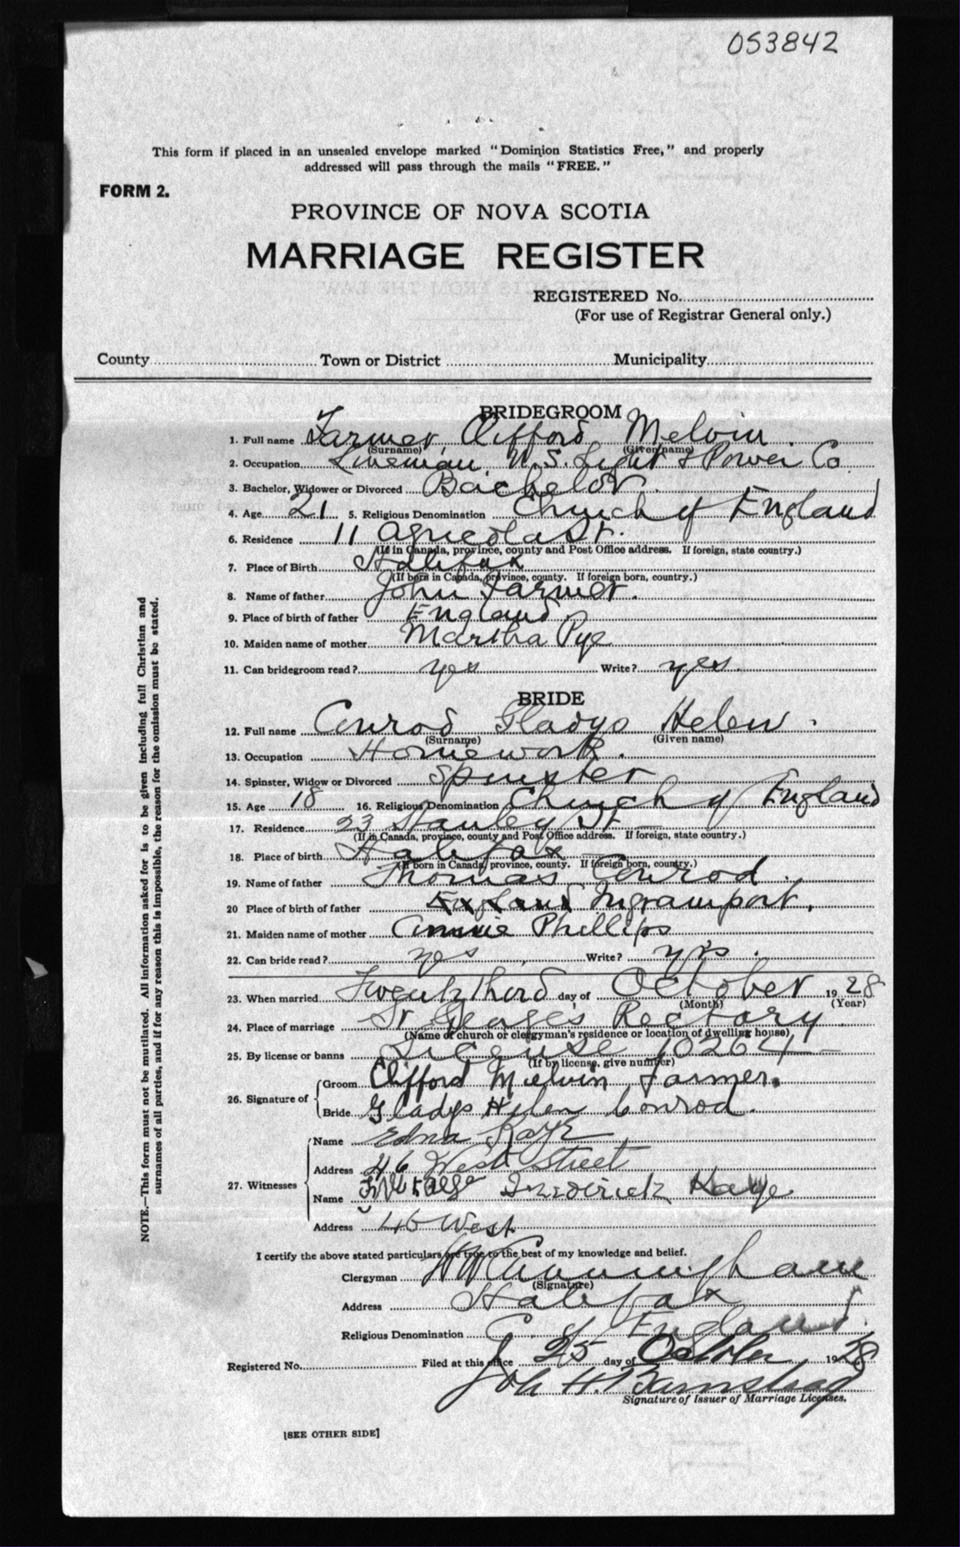 053842
This form if placed in an unsealed envelope marked "Dominion Statistics Free," and properly
addressed will pass through the mails "FREE."
FORM 2.
PROVINCE OF NOVA SCOTIA
MARRIAGE REGISTER
REGISTERED No.
(For use of Registrar General only.)
County Town or District Municipality
BRIDEGROOM
1. Full name Farmer, Clifford Melvin
(Surname) (Given name)
2. Occupation Lineman, N.S. Light & Power Co
3. Bachelor, Widower or Divorced Bachelor
4. Age 21 5. Religious Denomination Church of England
6. Residence 11 Agricola St.
(If in Canada, province, county and Post Office address. If foreign, state country.)
7. Place of Birth Halifax
(If born in Canada, province, county. If foreign born, country.)
8. Name of father John Farmer.
9. Place of birth of father England
10. Maiden name of mother Martha Pye
11. Can bridegroom read? yes Write? yes.
BRIDE
12. Full name Conrod Gladys Helen
(Surname) (Given name)
13. Occupation Homework.
14. Spinster, Widow or Divorced Spinster
15. Age 18 16. Religious Denomination Church of England
17. Residence 23 Stanley St
(If in Canada, province, county and Post Office address. If foreign, state country.)
18. Place of birth Halifax
(If born in Canada, province, county. If foreign born, country.)
19. Name of father Thomas Conrod.
20 Place of birth of father England Ingramport.
21. Maiden name of mother Annie Phillips
22. Can bride read? yes Write? yes.
23. When married Twenty third day of October 1928
(Month) (Year)
24. Place of marriage St Georges Rectory
(Name of church or clergyman's residence or location of dwelling house)
25. By license or banns License 10264
(If by license, give number)
26. Signature of Groom Clifford Melvin Farmer.
Bride Gladys Helen Conrod.
27. Witnesses Name Edna Kaye
Address 46 West Street
Name Frederick Kaye
Address 46 West
I certify the above stated particulars are true to the best of my knowledge and belief.
Clergyman Cunningham
(Signature)
Address Halifax
Religious Denomination C. of England.
Registered No. Filed at this office 25 day of October 1928
H.
Signature of Issuer of Marriage Licenses.
[SEE OTHER SIDE]
NOTE.—This form must not be mutilated. All information asked for is to be given including full Christian and
surnames of all parties, and if for any reason this is impossible, the reason for the omission must be stated.